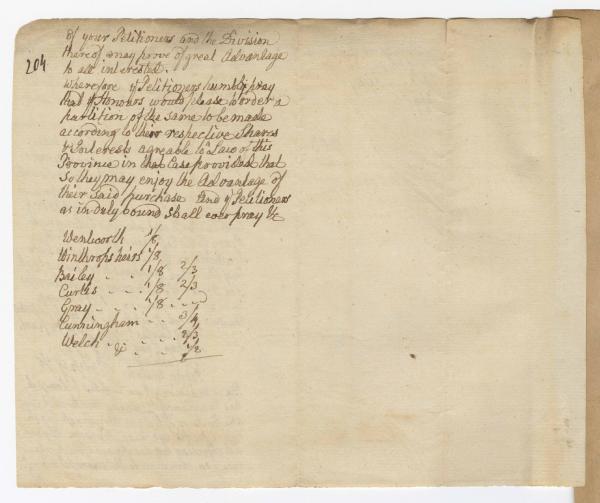 204
of your Petitioners and the Division
thereof may prove of great Advantage
to all interested.
Wherefore yr Petitioners humbly pray
that yr Honours would please to order a
partition of the same to be made
according to their respective Shares
& Interests agreable to a Law of this
Province in that Case provided that
so they may enjoy the Advantage of
their said purchase and yr Petitioners
as in duty bound shall ever pray &c
Wentworth 1/8
Winthrops heirs 1/8
Bailey . . 1/8 2/3
Curtes . . 1/8 2/3
Gray . . . 1/8
Cunningham . . 3/4
Welch . . . . 2/3
&c . . . 1/2